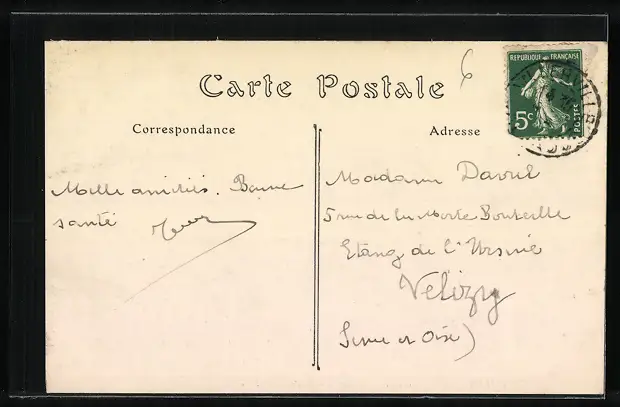 Carte Postale
6
REPUBLIQUE FRANÇAISE
5c
POSTES
Correspondance
Mille amitiés. Bonne
santé
Adresse
Madame Davril
5 rue de la Morte Bouteille
Etang de l'Ursine
Velizy
Seine et Oise)